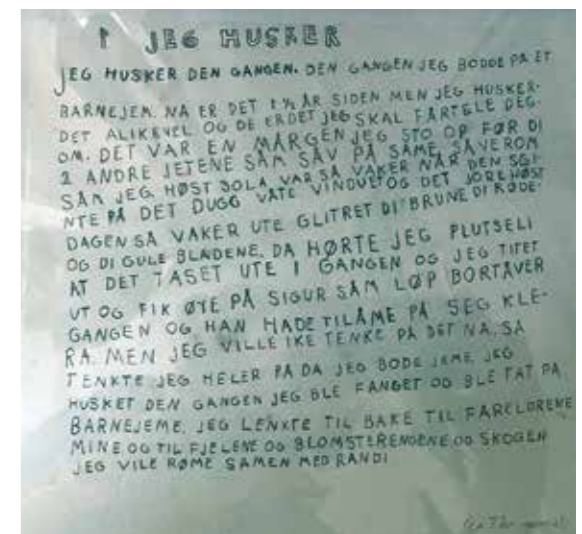 1 JEG HUSKER
JEG HUSKER DEN GANGEN. DEN GANGEN JEG BODDE PÅ ET
BARNEJEM. NA ER DET 1 ½ ÅR SIDEN MEN JEG HUSKER.
DET ALIKEVEL OG DE ER DET JEG SKAL FÅRTELE DEG.
OM. DET VAR EN MÅRGEN JEG STO OP FØR DI
2 ANDRE JETENE SÅM SÅV PÅ SAME, SÅVEROM
SÅM JEG. HØST SOLA VAR SÅ VAKER NÅR DEN SGI-
NTE PÅ DET DUGG VÅTE VINDUET OG DET JORE HØST
DAGEN SÅ VAKER UTE GLITRET DI BRUNE DI RØDE.
OG DI GULE BLADENE. DA HØRTE JEG PLUTSELI
AT DET TASET UTE I GANGEN OG JEG TITET
UT OG FIK ØYE PÅ SIGUR SÅM LØP BORTÅVER
GANGEN OG HAN HADE TILÅME PÅ SEG KLE-
RA. MEN JEG VILLE IKE TENKE PÅ DET NA, SÅ
TENKTE JEG HELER PÅ DA JEG BODE JEME. JEG
HUSKET DEN GANGEN JEG BLE FANGET OG BLE TAT PÅ
BARNEJEME. JEG LENKTE TIL BAKE TIL FÅRELDRENE
MINE OG TIL FJELENE OG BLOMSTERENGENE OG SKOGEN
JEG VILE RØME SAMEN MED RANDI